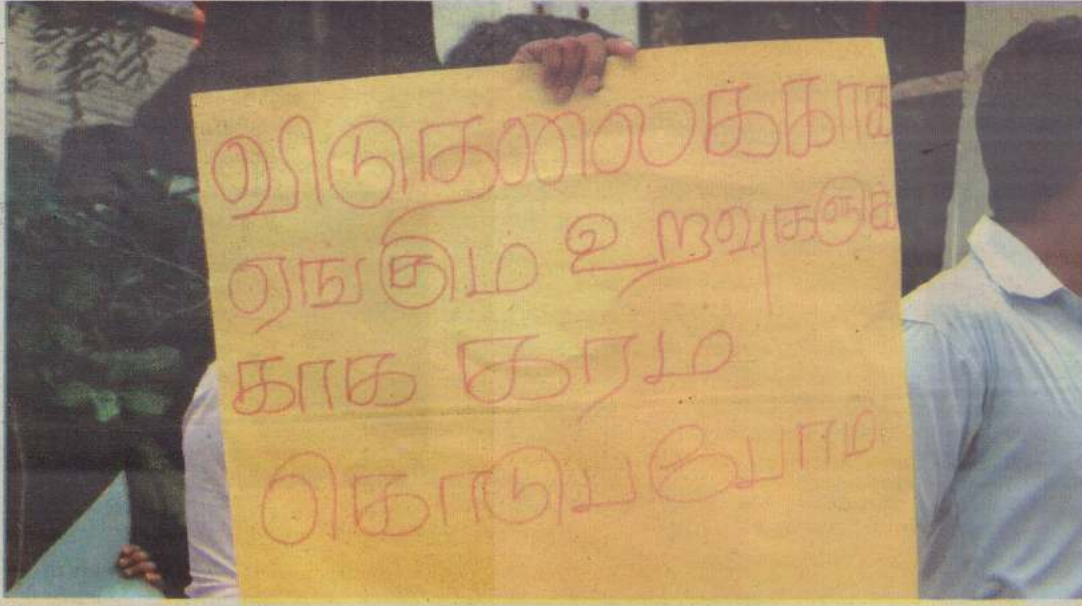 விடுதலைக்காக
ஏங்கும் உறவுகளுக்
காக கரம்
கொடுப்போம்